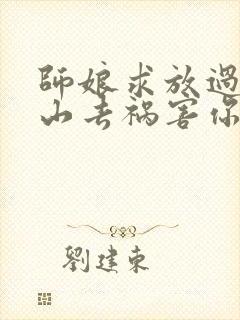 師娘求放過
山去禍害你
劉建東